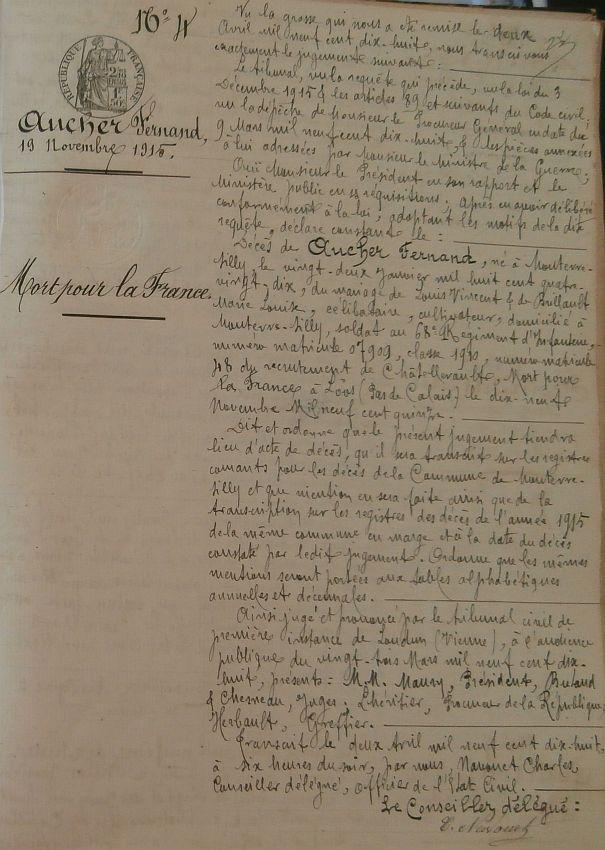 N° 4
RÉPUBLIQUE FRANÇAISE
Aucher Fernand,
19 Novembre 1915.
Mort pour la France.
Vu la grosse qui nous a été remise le deux
Avril mil neuf cent dix-huit, nous transcrivons
exactement le jugement suivant :
Le tribunal, vu la requête qui précède, vu la loi du 3
Décembre 1915 & les articles 89 et suivants du Code civil;
vu la dépêche de Monsieur le Procureur Général en date du
9 Mars mil neuf cent dix-huit, & les pièces annexées
à lui adressées par Monsieur le Ministre de la Guerre;
Ouï Monsieur le Président en son rapport et le
Ministère public en ses réquisitions; Après en avoir délibéré
conformément à la loi; adoptant les motifs de la dite
requête, déclare constant le :
Décès de Aucher Fernand, né à Monterre-
Silly le vingt-deux Janvier mil huit cent quatre-
vingt-dix, du mariage de Louis Vincent & de Brillault
Marie Louise, célibataire, cultivateur, domicilié à
Monterre-Silly, soldat au 68e Régiment d'Infanterie,
numéro matricule 07909, classe 1910, numéro matricule
708 du recrutement de Châtellerault, Mort pour
la France à Loos (Pas de Calais) le dix-neuf
Novembre Mil neuf cent quinze.
Dit et ordonne que le présent jugement tiendra
lieu d'acte de décès, qu'il sera transcrit sur les registres
courants pour les décès de la Commune de Monterre-
Silly et que mention en sera faite ainsi que de la
transcription sur les registres des décès de l'année 1915
de la même commune en marge et à la date du décès
constaté par ledit jugement. Ordonne que les mêmes
mentions seront portées aux tables alphabétiques
annuelles et décennales.
Ainsi jugé et prononcé par le tribunal civil de
première instance de Loudun (Vienne), à l'audience
publique du vingt-trois Mars mil neuf cent dix-
huit, présents : M.M. Maury, Président,
& Chesneau, Juges. Lhéritier, Procureur de la République
Herbault, Greffier.
Transcrit le deux Avril mil neuf cent dix-huit
à six heures du soir, par nous, Nauouet Charles,
Conseiller délégué, officier de l'Etat Civil.
Le Conseiller délégué :